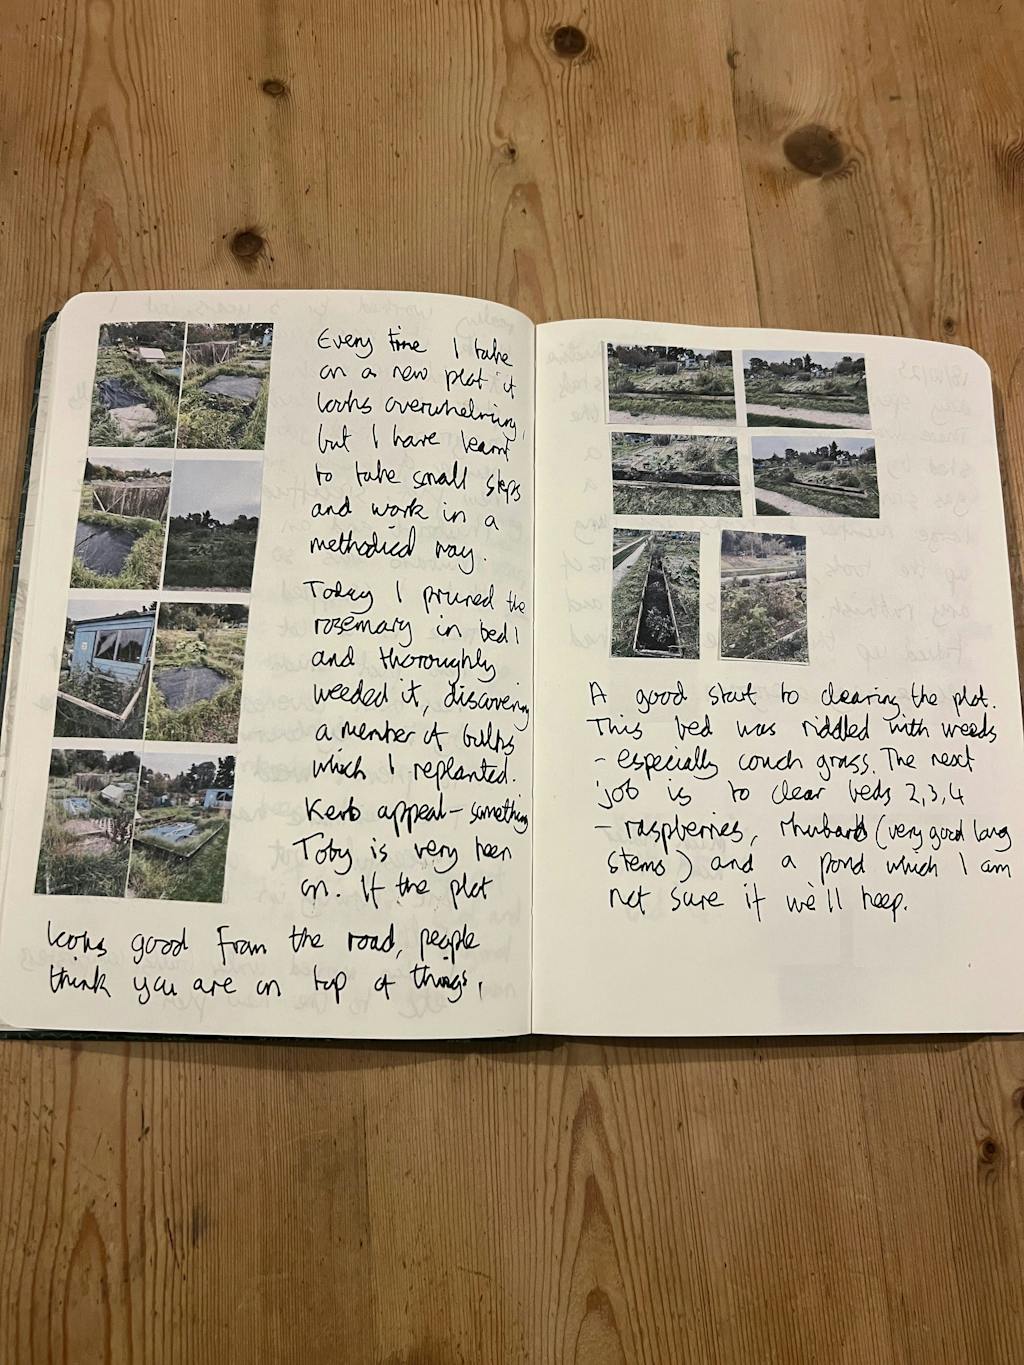 Every time I take
on a new plot it
looks overwhelming,
but I have learnt
to take small steps
and work in a
methodical way.
Today I pruned the
rosemary in bed 1
and thoroughly
weeded it, discovering
a number of bulbs
which I replanted.
Kerb appeal - something
Toby is very keen
on. If the plot
looks good from the road, people
think you are on top of things.
A good start to clearing the plot.
This bed was riddled with weeds
- especially couch grass. The next
job is to clear beds 2,3,4
- raspberries, rhubarb (very good long
stems) and a pond which I am
not sure if we'll keep.